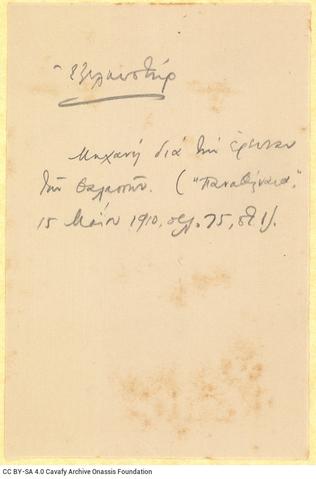 Ἐξερευνητήρ
Μηχανὴ διὰ τὴν ἔρευναν
τῶν θαλασσῶν. ("Παναθήναια,"
15 Μαΐου 1910, σελ. 75, στ 1).
CC BY-SA 4.0 Cavafy Archive Onassis Foundation